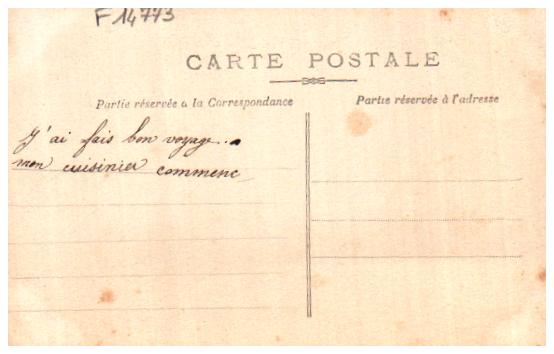 F 14773
CARTE POSTALE
Partie réservée à la Correspondance
Partie réservée à l'adresse
J'ai fais bon voyage...
mon cuisinier commenc